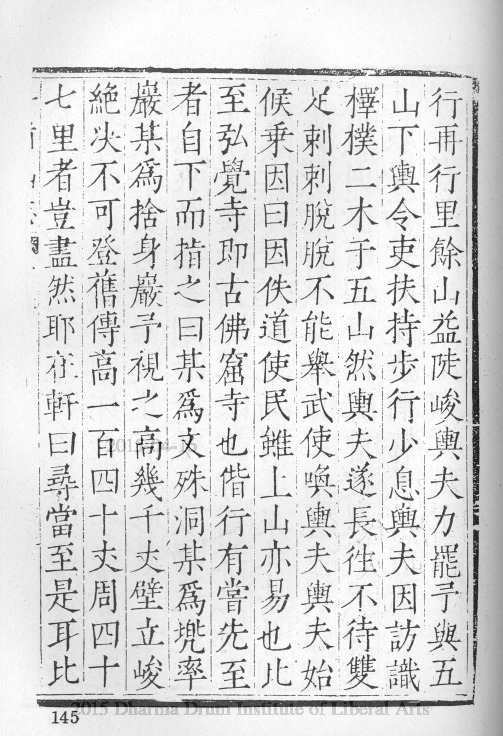 行再行里餘山益陡峻輿夫力罷予與五
山下輿令吏扶持步行少息輿夫因訪識
檡樸二木于五山然輿夫遂長徃不待雙
足刺刺脫脫不能舉武使喚輿夫輿夫始
候乗因曰因佚道使民雖上山亦易也比
至弘覺寺即古佛窟寺也偕行有嘗先至
者自下而指之曰某爲文殊洞某爲兠率
巖某爲捨身巖予視之高幾千丈壁立峻
絶决不可登舊傳高一百四十丈周四十
七里者豈盡然耶在軒曰尋當至是耳比
145
2015 Dharma Drum Institute of Liberal Arts